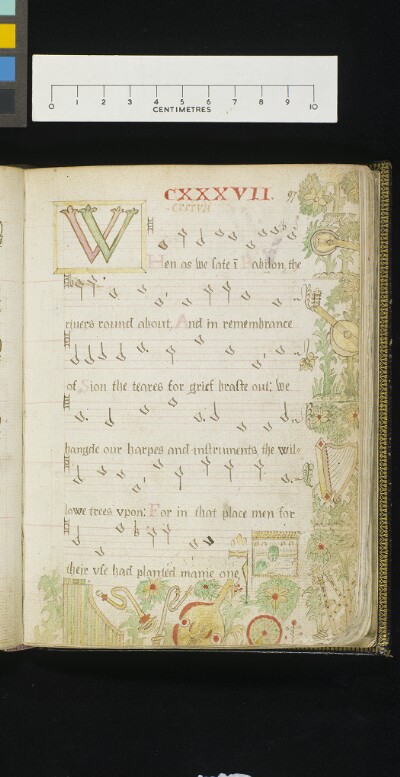 0 1 2 3 4 5 6 7 8 9 10
CENTIMETRES
CXXXVII. 97
W
Hen as we sate ī Babilon, the
rivers round about, And in remembrance
of Sion the teares for grief braste out; we
hangde our harpes and instruments, the wil=
lowe trees vpon: For in that place men for
their vse had planted manie one,